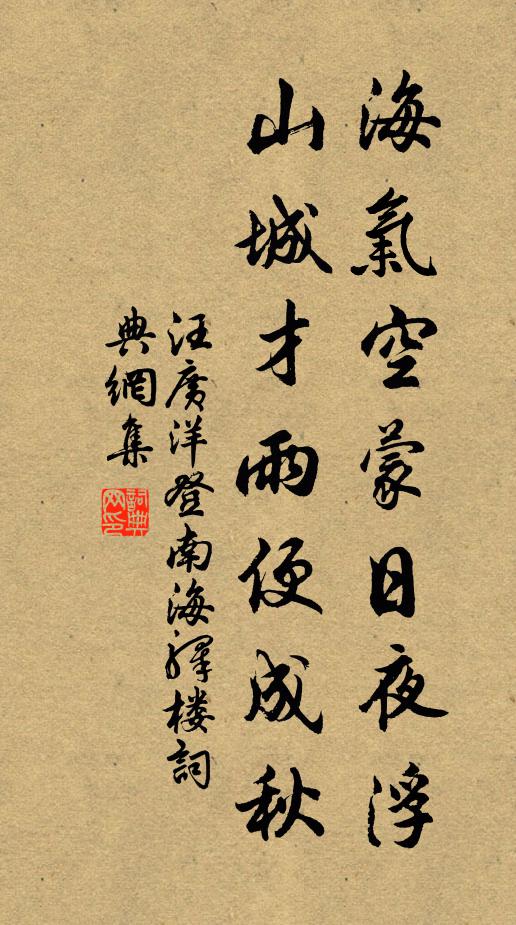 海氣空蒙日夜浮
山城才雨便成秋
汪廣洋登南海驛楼詞
典網集
詞典網印